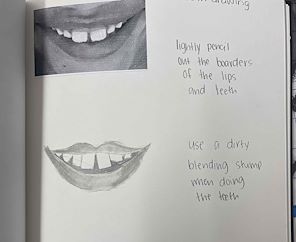 drawing
lightly pencil
out the boarders
of the lips
and teeth
use a dirty
blending stump
when doing
the teeth